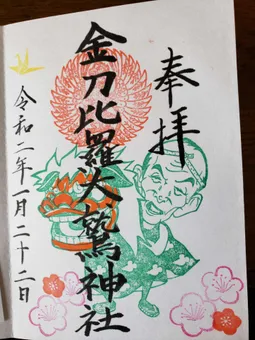 奉拝
金刀比羅大鷲神社
令和二年一月二十二日